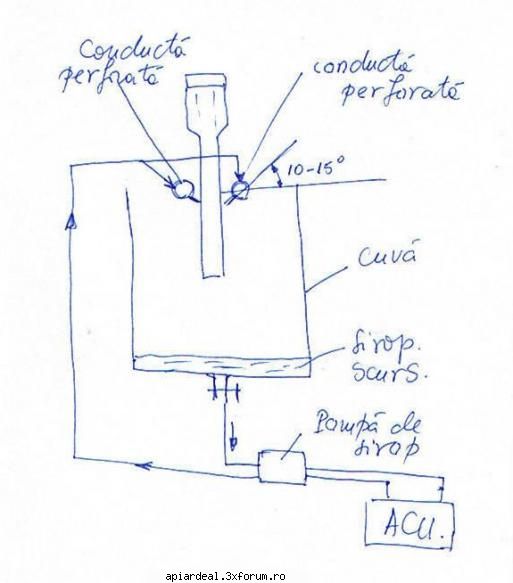 Conductă
perforată
conductă
perforată
10-15°
Cuvă
Sirop.
Scurs.
Pompă de
sirop
ACU.
apiardeal.3xforum.ro